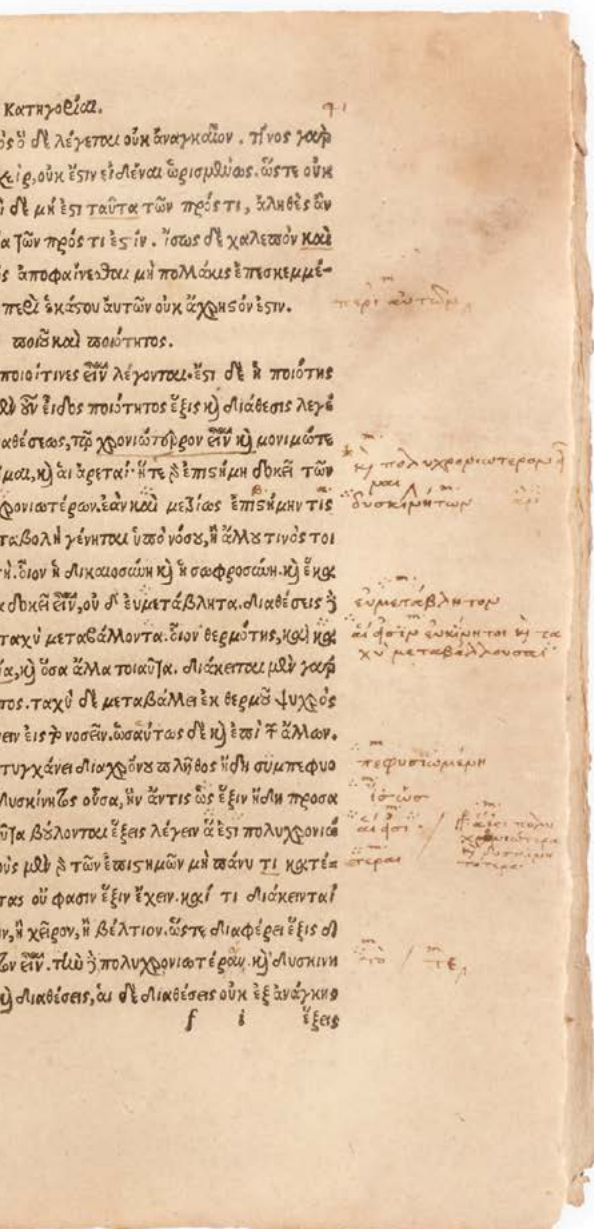 Κατηγορίαι.
ὸς ὃ δὲ λέγεται οὐκ ἀναγκαῖον. τίνος γὰρ
χεὶρ, οὐκ ἔστιν εἰδέναι ὡρισμένως. ὥστε οὐκ
δὲ μή ἐστι ταῦτα τῶν πρός τι, ἀληθὲς ἂν
α τῶν πρός τι ἐστίν. ἴσως δὲ χαλεπὸν καὶ
ς ἀποφαίνεσθαι μὴ πολλάκις ἐπεσκεμμέ-
περὶ ἑκάστου αὐτῶν οὐκ ἄχρηστόν ἐστιν.
ποιοῦ καὶ ποιότητος.
ποιοί τινες εἶναι λέγονται. ἔστι δὲ ἡ ποιότης
μὲν οὖν εἶδος ποιότητος ἕξις καὶ διάθεσις λεγέ
αθέσεως, τῷ χρονιώτερον εἶναι καὶ μονιμώτε
μαι, καὶ αἱ ἀρεταί. ἥ τε γὰρ ἐπιστήμη δοκεῖ τῶν
χρονιωτέρων. ἐὰν καὶ μετρίως ἐπιστήμην τις
ταβολὴ γένηται ὑπὸ νόσου, ἢ ἄλλου τινὸς τοι
τή. οἷον ἡ δικαιοσύνη καὶ ἡ σωφροσύνη. καὶ ἕκα
δοκεῖ εἶναι, οὐ δ' εὐμετάβλητα. διαθέσεις δὲ
ταχὺ μεταβάλλοντα. οἷον θερμότης, καὶ κα
ία, καὶ ὅσα ἄλλα τοιαῦτα. διάκειται μὲν γάρ
πος. ταχὺ δὲ μεταβάλλει ἐκ θερμοῦ ψυχρὸς
νειν εἰς τὸ νοσεῖν. ὡσαύτως δὲ καὶ ἐπὶ τῶν ἄλλων.
τυγχάνει διὰ χρόνου πλῆθος ἤδη συμπεφυο
δυσκίνητος οὖσα, ἣν ἄν τις ὡς ἕξιν ἤδη προσα
ῦτα βούλονται ἕξεις λέγειν ἅ ἐστι πολυχρονιώ
οὺς μὲν γὰρ τῶν ἐπιστημῶν μὴ πάνυ τι κατέ-
τας οὔ φασιν ἕξιν ἔχειν. καί τι διάκεινται
ν, ἢ χεῖρον, ἢ βέλτιον. ὥστε διαφέρει ἕξις δι
τον εἶναι. τὴν δὲ πολυχρονιωτέραν. καὶ δυσκινη
καὶ διαθέσεις, αἱ δὲ διαθέσεις οὐκ ἐξ ἀνάγκης
f i ἕξεις
περὶ αὐτῶν
καὶ πολυχρονιώτερον
μαι
δυσκινήτων
εὐμετάβλητον
αἵ εἰσιν εὐκίνητοι καὶ τα
χὺ μεταβάλλουσαι
πεφυσιωμένη
ἴσως
αἵ εἰσι
τε